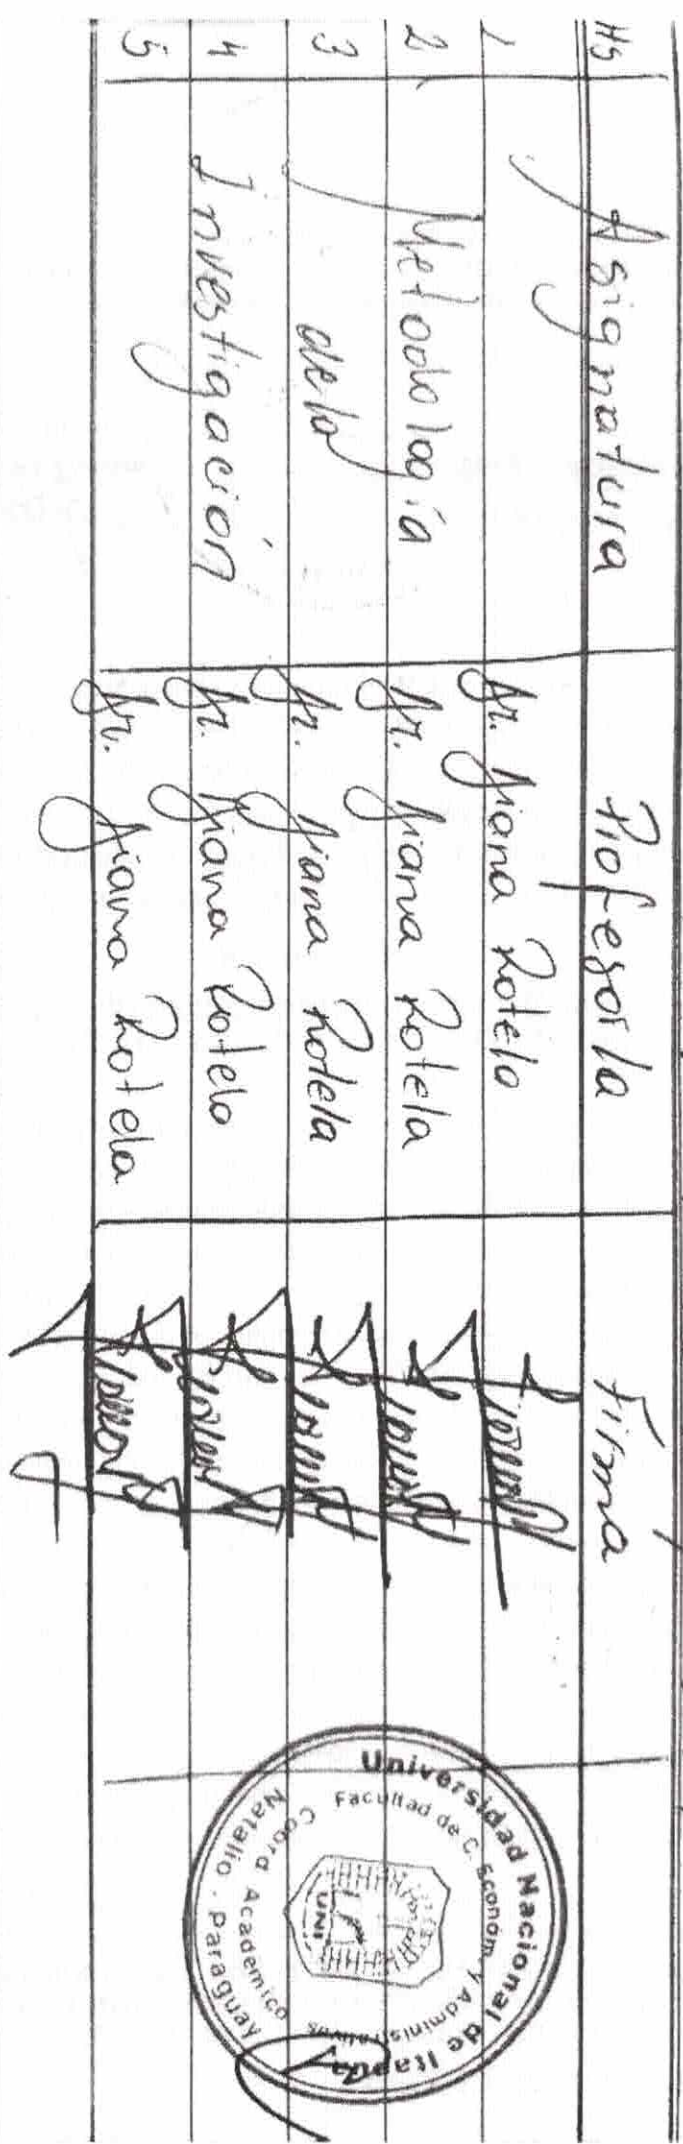 Hs Asignatura Profesor/a Firma
1 Dr. Diana Rotela
2 Metodología Dr. Diana Rotela
3 de la Dr. Diana Rotela
4 Investigación Dr. Diana Rotela
5 Dr. Diana Rotela
Universidad Nacional de Itapúa
Facultad de C. Econom. y Administrativas
Coord Academico
Natalio - Paraguay
UNI